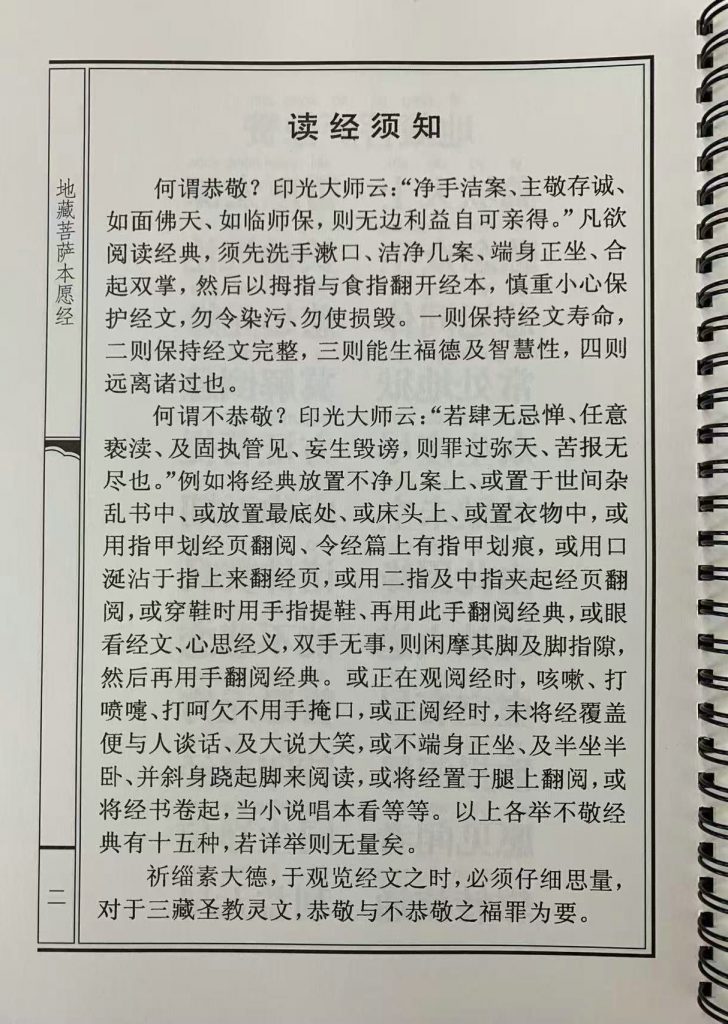 读经须知
何谓恭敬？印光大师云：“净手洁案、主敬存诚、
如面佛天、如临师保，则无边利益自可亲得。”凡欲
阅读经典，须先洗手漱口、洁净几案、端身正坐、合
起双掌，然后以拇指与食指翻开经本，慎重小心保
护经文，勿令染污、勿使损毁。一则保持经文寿命，
二则保持经文完整，三则能生福德及智慧性，四则
远离诸过也。
何谓不恭敬？印光大师云：“若肆无忌惮、任意
亵渎、及固执管见、妄生毁谤，则罪过弥天、苦报无
尽也。”例如将经典放置不净几案上、或置于世间杂
乱书中、或放置最底处、或床头上、或置衣物中，或
用指甲划经页翻阅、令经篇上有指甲划痕，或用口
涎沾于指上来翻经页，或用二指及中指夹起经页翻
阅，或穿鞋时用手指提鞋、再用此手翻阅经典，或眼
看经文、心思经义，双手无事，则闲摩其脚及脚指隙，
然后再用手翻阅经典。或正在观阅经时，咳嗽、打
喷嚏、打呵欠不用手掩口，或正阅经时，未将经覆盖
便与人谈话、及大说大笑，或不端身正坐、及半坐半
卧、并斜身跷起脚来阅读，或将经置于腿上翻阅，或
将经书卷起，当小说唱本看等等。以上各举不敬经
典有十五种，若详举则无量矣。
祈缁素大德，于观览经文之时，必须仔细思量，
对于三藏圣教灵文，恭敬与不恭敬之福罪为要。
地藏菩萨本愿经
二